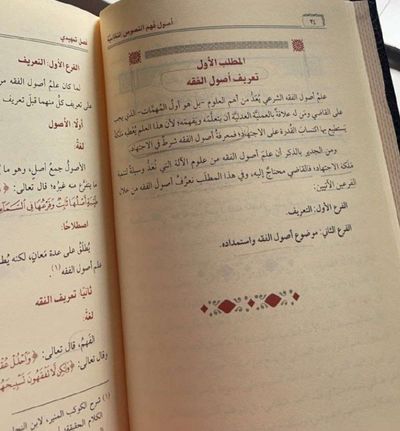 ٣٤
أصول فهم النصوص
المطلب الأول
تعريف أصول الفقه
علمُ أصول الفقه الشرعي يُعَدُّ من أهم العلوم -بل هو أولُ المهمَّات- الذي يجب
على القاضي ومَن له علاقةٌ بالعمليَّة العدليَّة أن يتعلَّمه ويفهمه؛ لأن هذا العلم يُعطِيه مَلَكة
يستطيع بها اكتسابَ القُدرة على الاجتهاد؛ فمعرفةُ أصول الفقه شرطٌ في الاجتهاد.
ومن الجدير بالذكر أن علمَ أصول الفقه من علوم الآلة التي تُعدُّ وسيلةً لتنمية
مَلَكة الاجتهاد؛ فالقاضي محتاجٌ إليه، وفي هذا المطلَب نعرِّف أصولَ الفقه من خلال
الفرعين الآتيين:
الفرع الأول: التعريف.
الفرع الثاني: موضوع أصول الفقه واستمداده.
فصل تمهيدي
الفرع الأول: التعريف
لما كان علمُ أصول الفقه
على تعريف كلٍّ منهما قبلَ تعريف
أولًا: الأصول
لغةً:
الأصولُ جمعُ أصلٍ، وهو ما
يتفرَّع منه غيرُه؛ قال تعالى:
طَيِّبَةٍ أَصْلُهَا ثَابِتٌ وَفَرْعُهَا فِي السَّمَاءِ
اصطلاحًا:
يُطلَق على عدة معانٍ، لكنه
علم أصول الفقه (١).
ثانيًا: تعريف الفقه
لغةً:
الفهمُ، قال تعالى: ﴿وَاحْلُلْ
وقال تعالى: ﴿وَلَكِن لَّا تَفْقَهُونَ تَسْبِيحَهُمْ
(١) شرح الكوكب المنير، لابن النجار